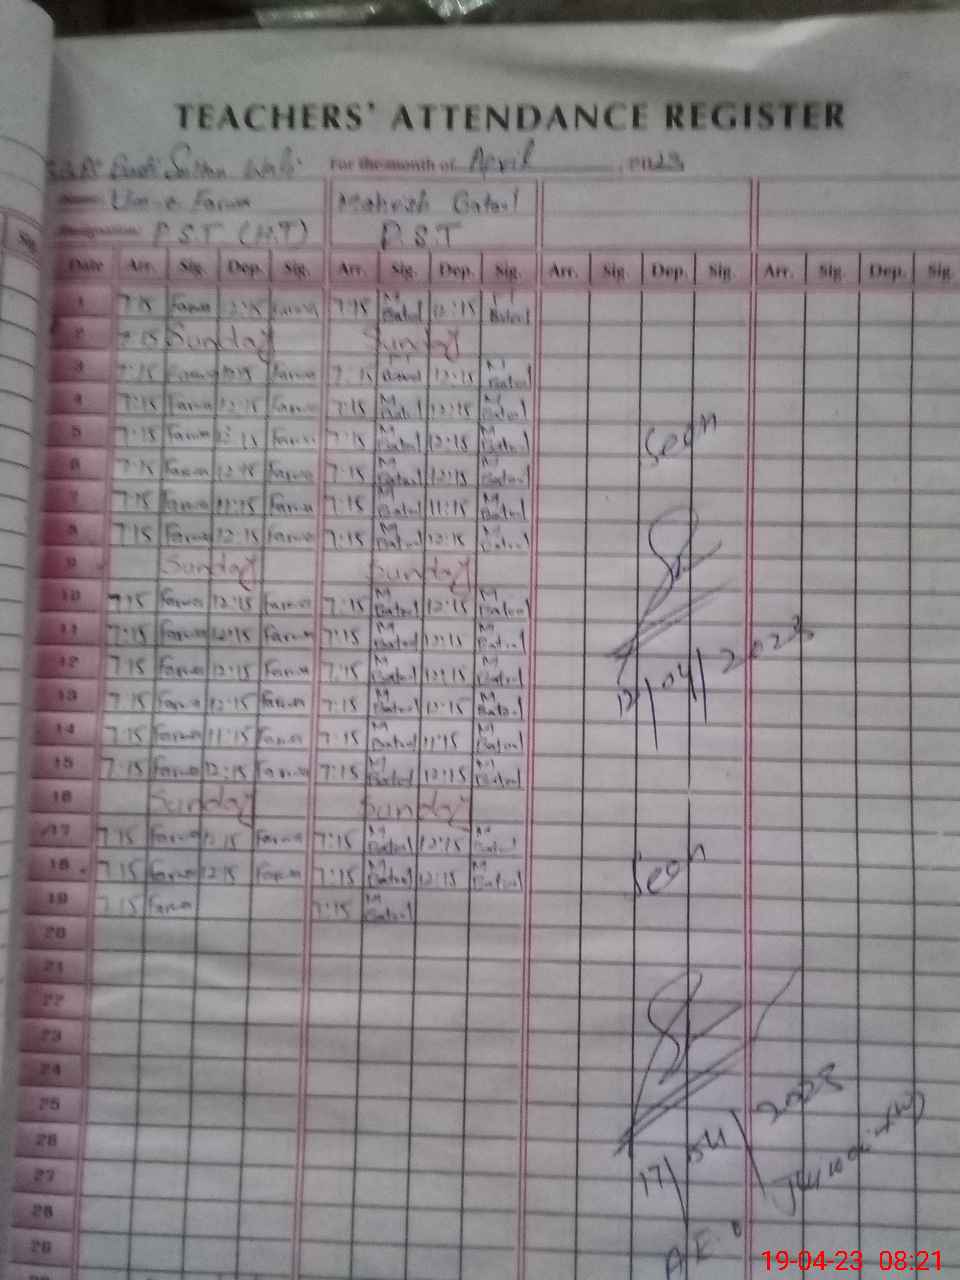 TEACHERS' ATTENDANCE REGISTER
For the month of April, 2023
Um-e-Farwa Mahvish Batool
Designation P.S.T (H.T) P.S.T
Date Arr. Sig. Dep. Sig. Arr. Sig. Dep. Sig. Arr. Sig. Dep. Sig. Arr. Sig. Dep. Sig.
1 7:15 Farwa 12:15 Farwa 7:15 M Batool 12:15 M Batool
2 7:15 Sunday Sunday
3 7:15 Farwa 12:15 Farwa 7:15 M Batool 12:15 M Batool
4 7:15 Farwa 12:15 Farwa 7:15 M Batool 12:15 M Batool
5 7:15 Farwa 12:15 Farwa 7:15 M Batool 12:15 M Batool
Seen
6 7:15 Farwa 12:15 Farwa 7:15 M Batool 12:15 M Batool
7 7:15 Farwa 11:15 Farwa 7:15 M Batool 11:15 M Batool
8 7:15 Farwa 12:15 Farwa 7:15 M Batool 12:15 M Batool
9 Sunday Sunday
10 7:15 Farwa 12:15 Farwa 7:15 M Batool 12:15 M Batool
11 7:15 Farwa 12:15 Farwa 7:15 M Batool 12:15 M Batool
12 7:15 Farwa 12:15 Farwa 7:15 M Batool 12:15 M Batool
12/04/2023
13 7:15 Farwa 12:15 Farwa 7:15 M Batool 12:15 M Batool
14 7:15 Farwa 11:15 Farwa 7:15 M Batool 11:15 M Batool
15 7:15 Farwa 12:15 Farwa 7:15 M Batool 12:15 M Batool
16 Sunday Sunday
17 7:15 Farwa 12:15 Farwa 7:15 M Batool 12:15 M Batool
18 7:15 Farwa 12:15 Farwa 7:15 M Batool 12:15 M Batool
Seen
19 7:15 Farwa 7:15 M Batool
20
21
22
23
24
25
26
27
17/04/2023
28
29
A.E.O
19-04-23 08:21